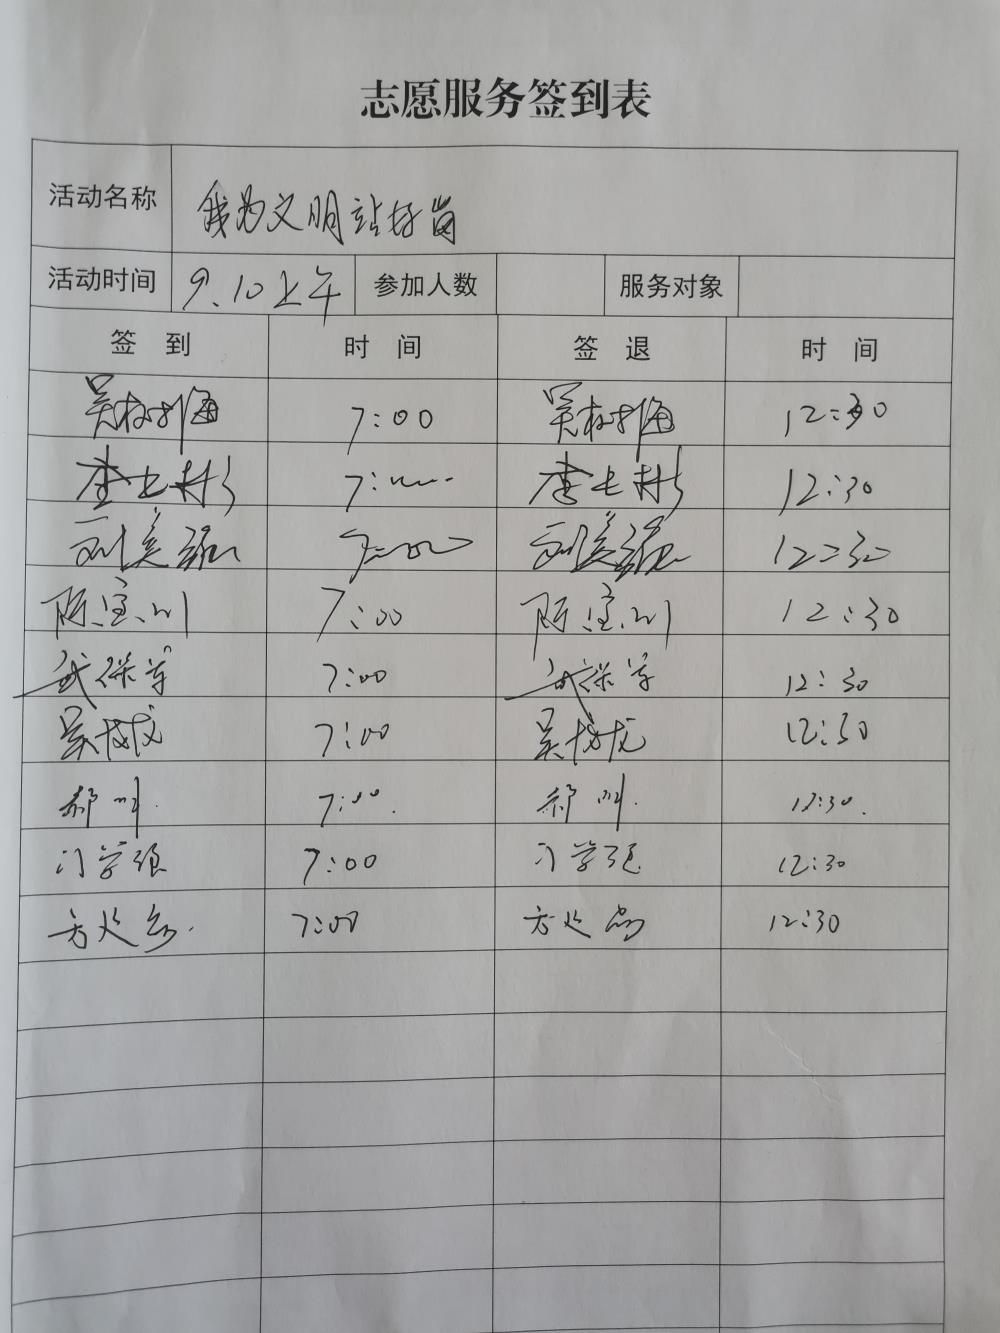 志愿服务签到表
活动名称 我为文明站好岗
活动时间 9.10上午 参加人数 服务对象
签 到 时 间 签 退 时 间
吴树海 7:00 吴树海 12:30
李士彬 7:00 李士彬 12:30
刘美 7:00 刘美 12:30
陈宝川 7:00 陈宝川 12:30
武保学 7:00 武保学 12:30
吴成龙 7:00 吴成龙 12:30
郝 7:00. 郝 12:30.
门学强 7:00 门学强 12:30
方 7:00 方 12:30